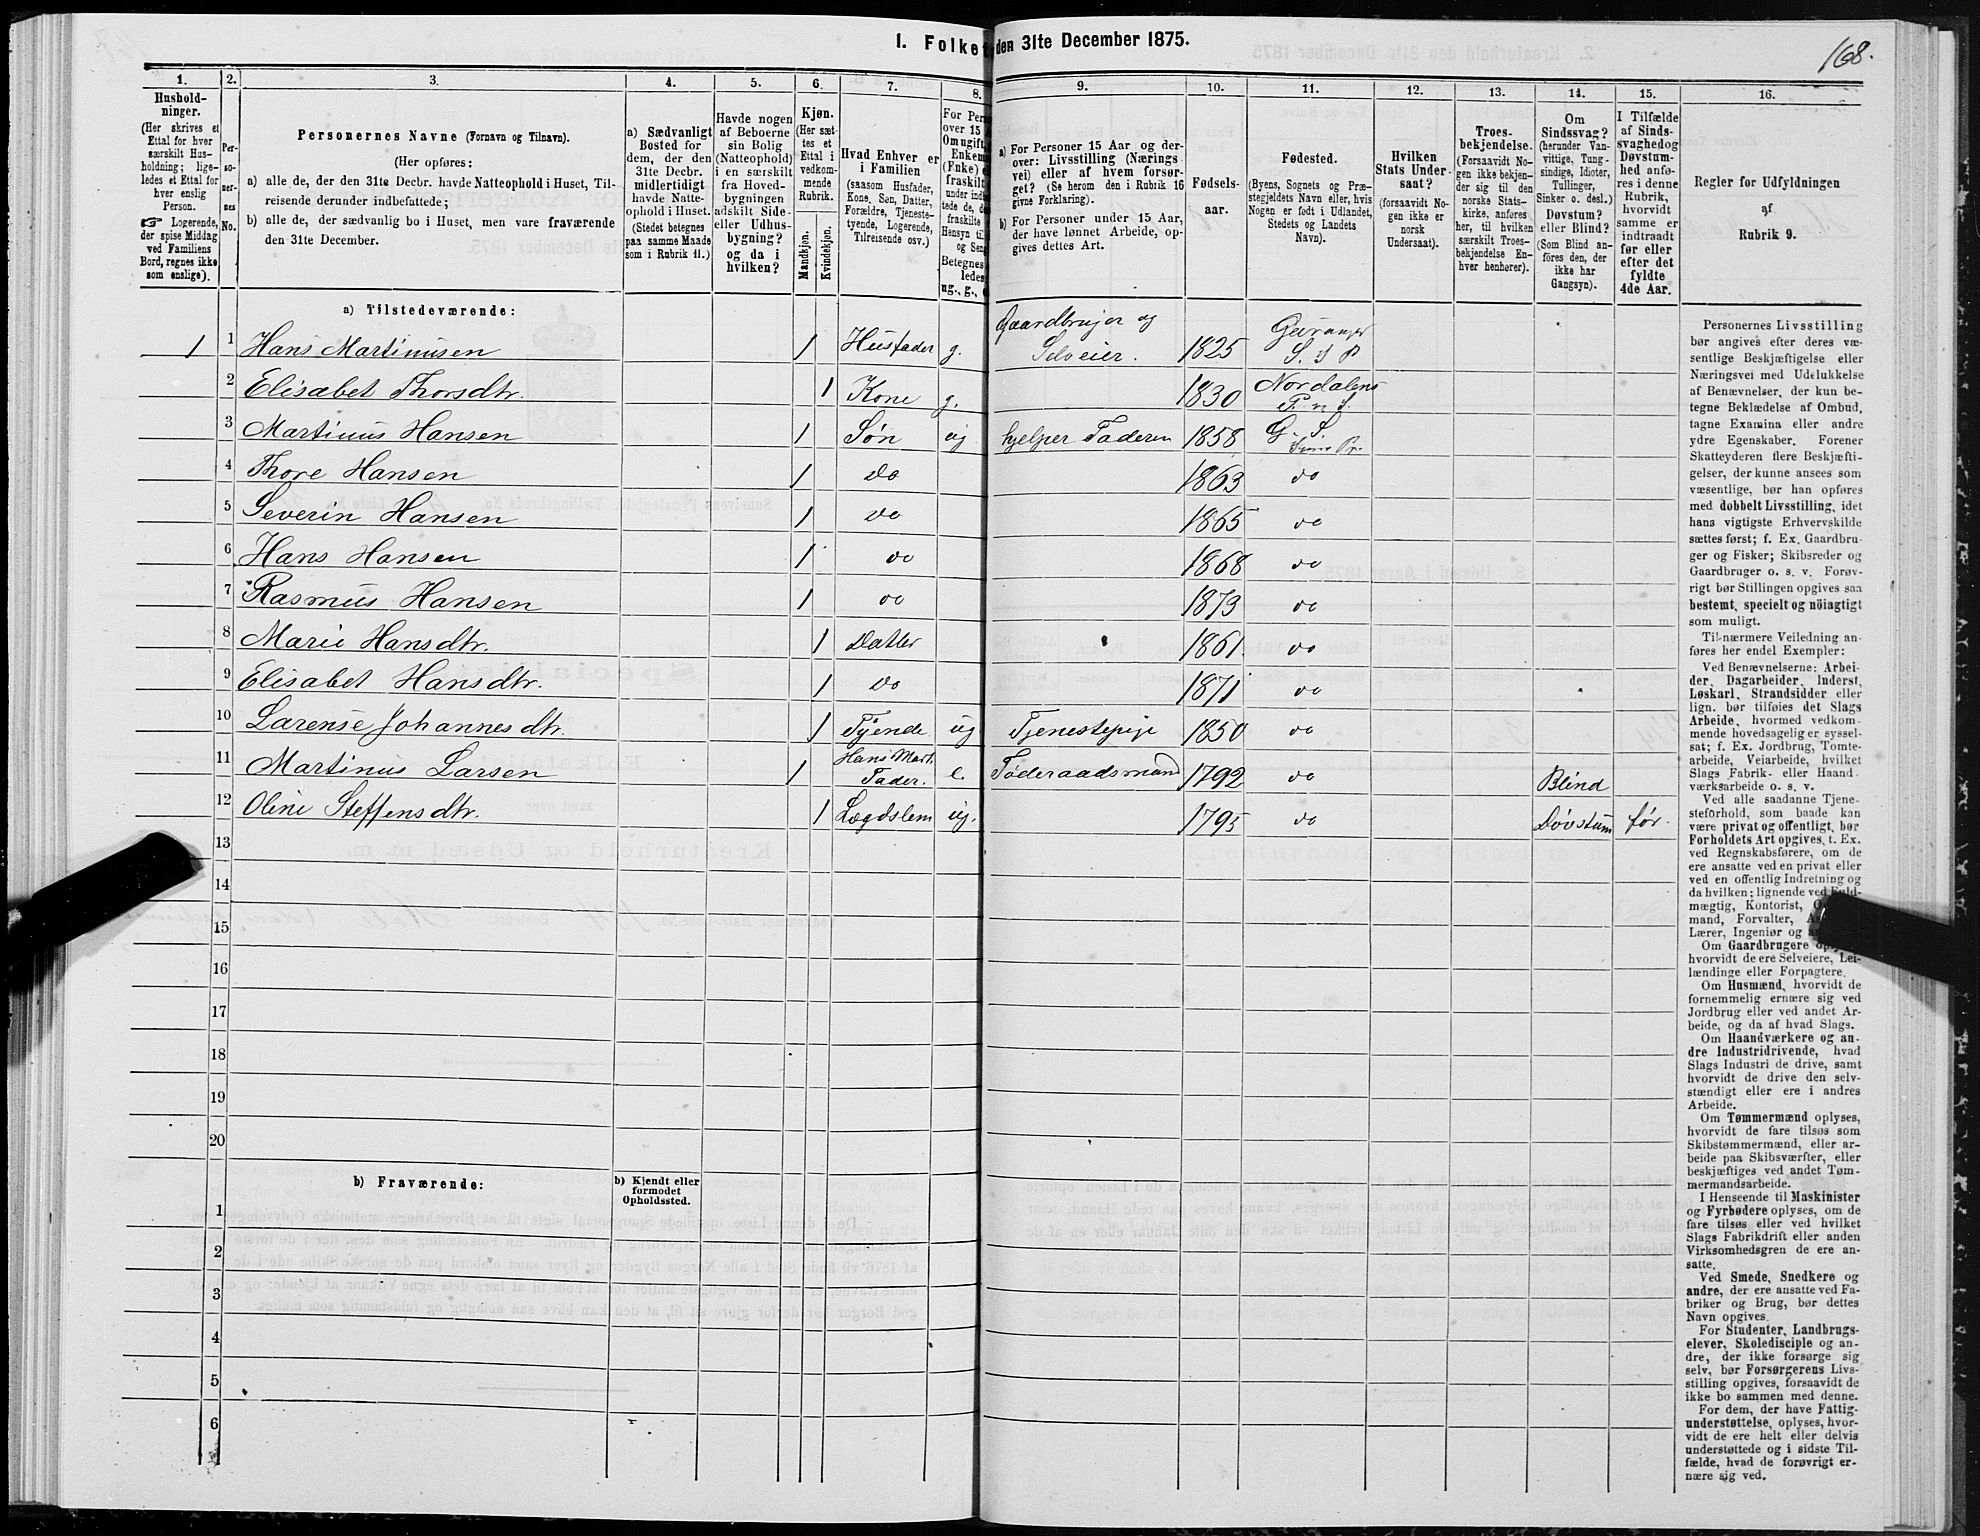 I. Folket den 31te December 1875.
168.
1. 2. 3. 4. 5. 6. 7. 8. 9. 10. 11. 12. 13. 14. 15. 16.
Hushold-
ninger.
(Her skrives et
Ettal for hver
særskilt Hus-
holdning; lige-
ledes et Ettal for
hver enslig
Person.
Logerende,
der spise Middag
ved Familiens
Bord, regnes ikke
som enslige).
Per-
so-
ner-
nes
No.
Personernes Navne (Fornavn og Tilnavn).
(Her opføres:
a) alle de, der den 31te Decbr. havde Natteophold i Huset, Til-
reisende derunder indbefattede;
b) alle de, der sædvanlig bo i Huset, men vare fraværende
den 31te December.
a) Sædvanligt
Bosted for
dem, der den
31te Decbr.
midlertidigt
havde Natte-
ophold i Huset.
(Stedet betegnes
paa samme Maade
som i Rubrik 11.)
Havde nogen
af Beboerne
sin Bolig
(Natteophold)
i en særskilt
fra Hoved-
bygningen
adskilt Side-
eller Udhus-
bygning?
og da i
hvilken?
Kjøn.
(Her sæt-
tes et
Ettal i
vedkom-
mende
Rubrik.
Mandkjøn.
Kvindekjøn.
Hvad Enhver er
i Familien
(saasom Husfader,
Kone, Søn, Datter,
Forældre, Tjeneste-
tyende, Logerende,
Tilreisende osv.)
For Pers
over 15 A
Om ugift,
Enkem
(Fnke) e
fraskilt
under ind
tede de, d
fraskilte
Hensyn til
og Sen
Betegnes
ledes
ug., g., e
a) For Personer 15 Aar og der-
over: Livsstilling (Nærings
vei) eller af hvem forsør-
get? (Se herom den i Rubrik 16
givne Forklaring).
b) For Personer under 15 Aar,
der have lønnet Arbeide, op-
gives dettes Art.
Fødsels-
aar.
Fødested.
(Byens, Sognets og Præ-
stegjeldets Navn eller, hvis
Nogen er født i Udlandet,
Stedets og Landets
Navn).
Hvilken
Stats Under-
saat?
(forsaavidt No-
gen ikke er
norsk
Undersaat).
Troes-
bekjendelse.
(Forsaavidt No-
gen ikke bekjen-
der sig til den
norske Stats-
kirke, anføres
her, til hvilken
særskilt Troes-
bekjendelse En-
hver henhører).
Om
Sindssvag?
(herunder Van-
vittige, Tung-
sindige, Idioter,
Tullinger,
Sinker o. desl.)
Døvstum?
eller Blind?
(Som Blind an-
føres den, der
ikke har
Gangsyn).
I Tilfælde
af Sinds-
svaghed og
Døvstum-
hed anfø-
res i denne
Rubrik,
hvorvidt
samme er
indtraadt
før eller
efter det
fyldte
4de Aar.
Regler for Udfyldningen
af
Rubrik 9.
a) Tilstedeværende:
1 1 Hans Martinusen 1 Husfader g. Gaardbruger og Selveier. 1825 Geiranger S. i P
2 Elisabet Thorsdtr. 1 Kone g. 1830 Nordalens P. n S.
3 Martinus Hansen 1 Søn ug hjelper Faderen 1858 G. S.
4 Thore Hansen 1 do 1863 do
5 Severin Hansen 1 do 1865 do
6 Hans Hansen 1 do 1868 do
7 Rasmus Hansen 1 do 1873 do
8 Marie Hansdtr. 1 Datter 1861 do
9 Elisabet Hansdtr. 1 do 1871 do
10 Larense Johannesdtr. 1 Tyende ug Tjenestepige 1850 do
11 Martinus Larsen 1 Hans Mart. Fader. e. Føderaadsmand 1792 do Blind
12 Oline Steffensdtr. 1 Lægdslem ug. 1795 do Døvstum før.
13
14
15
16
17
18
19
20
b) Fraværende:
b) Kjendt eller
formodet
Opholdssted.
1
2
3
4
5
6
Personernes Livsstilling
bør angives efter deres væ-
sentlige Beskjæftigelse eller
Næringsvei med Udelukkelse
af Benævnelser, der kun be-
tegne Beklædelse af Ombud,
tagne Examina eller andre
ydre Egenskaber. Forener
Skatteyderen flere Beskjæfti-
gelser, der kunne ansees som
væsentlige, bør han opføres
med dobbelt Livsstilling, idet
hans vigtigste Erhvervskilde
sættes først; f. Ex. Gaardbru-
ger og Fisker; Skibsreder og
Gaardbruger o. s. v. Forøv-
rigt bør Stillingen opgives saa
bestemt, specielt og nöiagtigt
som muligt.
Til nærmere Veiledning an-
føres her endel Exempler:
Ved Benævnelserne: Arbei-
der, Dagarbeider, Inderst,
Løskarl, Strandsidder eller
lign. bør tilføies det Slags
Arbeide, hvormed vedkom-
mende hovedsagelig er syssel-
sat; f. Ex. Jordbrug, Tomte-
arbeide, Veiarbeide, hvilket
Slags Fabrik- eller Haand-
værksarbeide o. s. v.
Ved alle saadanne Tjene-
steforhold, som baade kan
være privat og offentligt, bør
Forholdets Art opgives, t. Ex.
ved Regnskabsførere, om de
ere ansatte ved en privat eller
ved en offentlig Indretning og
da hvilken; lignende ved Fuld-
mægtig, Kontorist,
mand, Forvalter,
Lærer, Ingeniør og
Om Gaardbrugere
hvorvidt de ere Selveiere, Lei-
lændinge eller Forpagtere.
Om Husmænd, hvorvidt de
fornemmelig ernære sig ved
Jordbrug eller ved andet Ar-
beide, og da af hvad Slags.
Om Haandværkere og an-
dre Industridrivende, hvad
Slags Industri de drive, samt
hvorvidt de drive den selv-
stændigt eller ere i andres
Arbeide.
Om Tømmermænd oplyses,
hvorvidt de fare tilsøs som
Skibstømmermænd, eller ar-
beide paa Skibsværfter, eller
beskjæftiges ved andet Tøm-
mermandsarbeide.
I Henseende til Maskinister
og Fyrbødere oplyses, om de
fare tilsøs eller ved hvilket
Slags Fabrikdrift eller anden
Virksomhedsgren de ere an-
satte.
Ved Smede, Snedkere og
andre, der ere ansatte ved Fa-
briker og Brug, bør dettes
Navn opgives.
For Studenter, Landbrugs-
elever, Skoledisciple og an-
dre, der ikke forsørge sig
selv, bør Forsørgerens Livs-
stilling opgives, forsaavidt de
ikke bo sammen med denne.
For dem, der have Fattig-
understøttelse, oplyses, hvor-
vidt de ere helt eller delvis
understøttede og i sidste Til-
fælde, hvad de forøvrigt er-
nære sig ved.